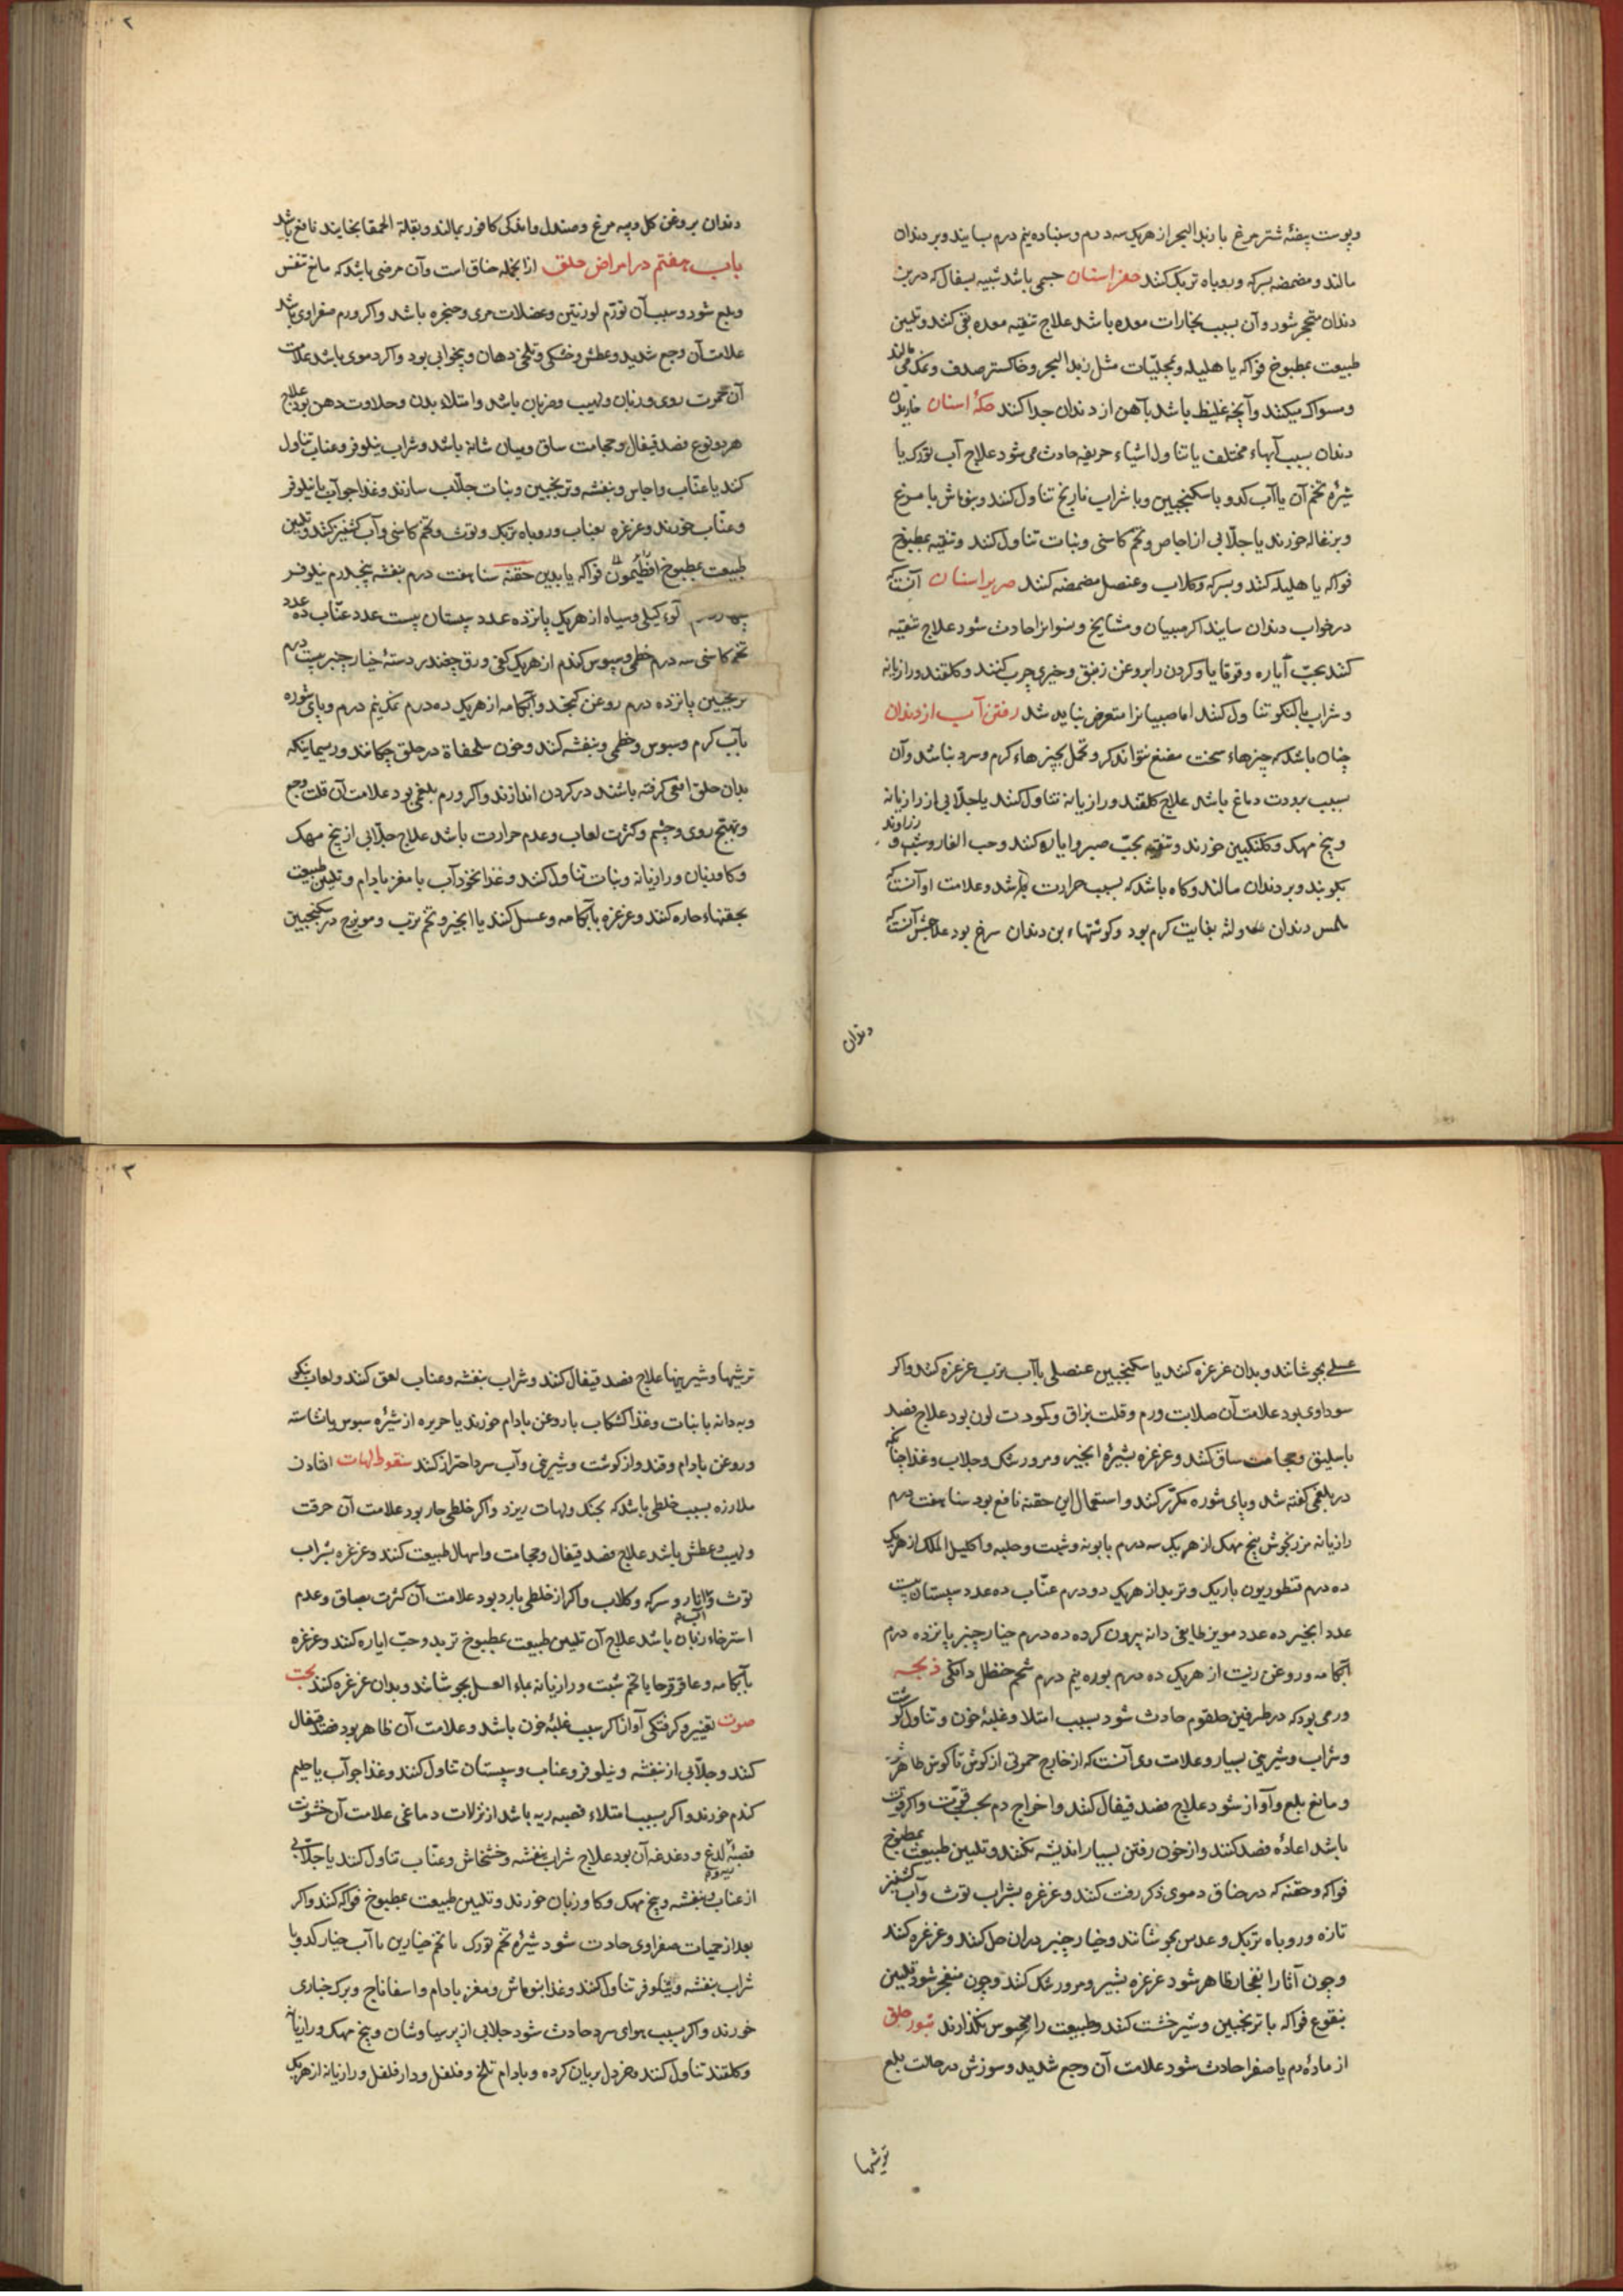 و پوست بیضهٔ شترمرغ با زبد البحر از هریک سه درم و سنباده نیم درم بسایند و بر دندان
مالند و مضمضه بسرکه و روباه تربک کنند حفر اسنان جسمی باشد شبیه بسفال که در بن
دندان متحجر شود و آن بسبب بخارات معده باشد علاج تنقیه معده بقی کنند و تلیین
طبیعت بمطبوخ فواکه یا هلیله و بمجلیات مثل زبد البحر و خاکستر صدف و نمک می مالند
و مسواک میکنند و آنچه غلیظ باشد بآهن از دندان جدا کنند حکهٔ اسنان خاریدن
دندان بسبب آبهاء مختلف یا تناول اشیاء حریفه حادث می شود علاج آب تورک یا
شیرهٔ تخم آن یا آب کدو با سکنجبین و با شراب نارنج تناول کنند و بنوماش با مرغ
و بزغاله خورند یا جلابی از اجاص و تخم کاسنی و نبات تناول کنند و تنقیه بمطبوخ
فواکه یا هلیله کنند و بسرکه و کلاب و عنصل مضمضه کنند صریر اسنان آنست که
در خواب دندان سایند اکر صبیان و مشایخ و نسوانرا حادث شود علاج تنقیه
کنند بحب ایاره و قوقایا و کردن را بروغن زنبق و خیری چرب کنند و کلقند و رازیانه
و شراب بالنکو تناول کنند اما صبیانرا متعرض نباید شد رفتن آب از دندان
چنان باشد که چیزهاء سخت مضغ نتواند کر و تحمل چیزهاء کرم و سرد نباشد و آن
بسبب برودت دماغ باشد علاج کلقند و رازیانه تناول کنند یا جلابی از رازیانه
و بیخ مهک و کلنکبین خورند و تنقیه بحب صبر و ایاره کنند و حب الغار و شب و زراوند
بکوبند و بر دندان مالند و کاه باشد که بسبب حرارت باشد و علامت او آنست که
ملمس دندان و لثه بغایت کرم بود و کوشتهاء بن دندان سرخ بود علاجش آنست که
دندان
۲
دندان بروغن کل و پیه مرغ و صندل و اندکی کافور بمالند و بقلة الحمقا بخایند نافع باشد
باب هفتم در امراض حلق از آنجمله خناق است و آن مرضی باشد که مانع تنفس
و بلع شود و سبب آن تورّم لوزتین و عضلات مری و حنجره باشد و اکر ورم صفراوی باشد
علامت آن وجع شدید و عطش و خشکی و تلخی دهان و بیخوابی بود و اکر دموی باشد علامت
آن حمرت روی و زبان و لهیب و ضربان باشد و امتلاء بدن و حلاوت دهن بود علاج
هر دو نوع فصد قیفال و حجامت ساق و میان شانه باشد و شراب نیلوفر و عناب تناول
کنند یا عنّاب و اجاص و بنفشه و ترنجبین و نبات جلّاب سازند و غذا جوآب با نیلوفر
و عنّاب خورند و غرغره بعناب و روباه تربک و توث و تخم کاسنی و آب کشنیز کنند و تلیین
طبیعت بمطبوخ افتیمون فواکه یا بدین حقنه سنا هفت درم بنفشه پنجدرم نیلوفر
آلوء کیلی و سیاه از هریک پانزده عدد سپستان بیست عدد عنّاب ده عدد
تخم کاسنی سه درم خطمی و سبوس کندم از هریک کفی ورق چغندر دستهٔ خیارچنبر بیست درم
ترنجبین پانزده درم روغن کنجد و آبکامه از هریک ده درم نمک نیم درم و پای شوره
بآب کرم و سبوس و خطمی و بنفشه کنند و خون سلحفاة در حلق چکانند و ریسمانیکه
بدان حلق افعی کرفته باشند در کردن اندازند و اکر ورم بلغمی بود علامت آن قلت وجع
و تهیج روی و چشم و کثرت لعاب و عدم حرارت باشد علاج جلّابی از بیخ مهک
و کاوزبان و رازیانه و نبات تناول کنند و غذا نخودآب با مغز بادام و تلیین طبیعت
بحقنهاء حاره کنند و غرغره بآبکامه و عسل کنند یا انجیر و تخم ترب و مویزج در سکنجبین
عسلی بجوشانند و بدان غرغره کنند یا سکنجبین عنصلی با آب ترب غرغره کنند و اکر
سوداوی بود علامت آن صلابت ورم و قلت بزاق و کمودت لون بود علاج فصد
باسلیق و حجامت ساق کنند و غرغره بشیرهٔ انجیر و مرورشک و جلاب و غذا چنانکه
در بلغمی کفته شد و پای شوره مکرّر کنند و استعمال این حقنه نافع بود سنا هفت درم
رازیانه مرزنجوش بیخ مهک از هریک سه درم بابونه و شبت و حلبه و اکلیل الملک از هریک
ده درم قنطوریون باریک و تربد از هریک دو درم عنّاب ده عدد سپستان بیست
عدد انجیر ده عدد مویز طایفی دانه بیرون کرده ده درم خیارچنبر پانزده درم
آبکامه و روغن زیت از هریک ده درم بوره نیم درم شحم حنظل دانکی ذبحه
ورمی بود که در طرفین حلقوم حادث شود بسبب امتلا و غلبهٔ خون و تناول کوشت
و شراب و شیرینی بسیار و علامت وی آنست که از خارج حمرتی از کوش تا کوش ظاهر شود
و مانع بلع و آواز شود علاج فصد قیفال کنند و اخراج دم بحسب قوّت و اکر قوت
باشد اعادهٔ فصد کنند و از خون رفتن بسیار اندیشه نکنند و تلیین طبیعت بمطبوخ
فواکه و حقنه که در خناق دموی ذکر رفت کنند و غرغره بشراب توث و آب کشنیز
تازه و روباه تربک و عدس بجوشانند و خیارچنبر در آن حل کنند و غرغره کنند
و چون آثار انفجار ظاهر شود غرغره بشیر و مرورشک کنند و چون منفجر شود تلیین
بنقوع فواکه با ترنجبین و شیرخشت کنند و طبیعت را محبوس نکذارند بثور حلق
از مادهٔ دم یا صفرا حادث شود علامت آن وجع شدید و سوزش در حالت بلع
ترشیها
۳
ترشیها و شیرینیها علاج فصد قیفال کنند و شراب بنفشه و عناب لعق کنند و لعاب بنکو
و به دانه با نبات و غذا کشکاب با روغن بادام خورند یا حریره از شیرهٔ سبوس یا نشاسته
و روغن بادام و قند و از کوشت و شیرینی و آب سرد احتراز کنند سقوط لهات افتادن
ملازه بسبب خلطی باشد که بحنک و لهات ریزد و اکر خلطی حار بود علامت آن حرقت
و لهیب و عطش باشد علاج فصد قیفال و حجامت و اسهال طبیعت کنند و غرغره بشراب
توث و آب انار و سرکه و کلاب و اکر از خلطی بارد بود علامت آن کثرت بصاق و عدم
استرخاء زبان باشد علاج آن تلیین طبیعت بمطبوخ تربد و حبّ ایاره کنند و غرغره
بآبکامه و عاقرقرحا یا تخم شبت و رازیانه بماء العسل بجوشانند و بدان غرغره کنند بحت
صوت تغییر و کرفتکی آواز اکر سبب غلبهٔ خون باشد و علامت آن ظاهر بود فصد قیفال
کنند و جلّابی از بنفشه و نیلوفر و عناب و سپستان تناول کنند و غذا جوآب یا حلیم
کندم خورند و اکر بسبب امتلاء قصبه ریه باشد از نزلات دماغی علامت آن خشونت
قصبهٔ لدغ و دغدغه آن بود علاج شراب بنفشه و خشخاش و عنّاب تناول کنند یا جلّابی
از عناب و بنفشه و بیخ مهک و کاوزبان خورند و تلیین طبیعت بمطبوخ فواکه کنند و اکر
بعد از حمیات صفراوی حادث شود شیرهٔ تخم تورک با تخم خیارین با آب خیار کدو با
شراب بنفشه و نیلوفر تناول کنند و غذا بنوماش و مغز بادام و اسفاناج و برک خبازی
خورند و اکر بسبب هوای سرد حادث شود جلابی از پرسیاوشان و بیخ مهک و رازیانه
و کلقند تناول کنند و خردل بریان کرده و بادام تلخ و فلفل و دارفلفل و رازیانه از هریک